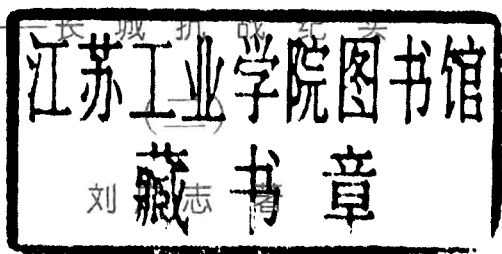 ——长城抗战纪实
江苏工业学院图书馆
藏书章
刘 志 著